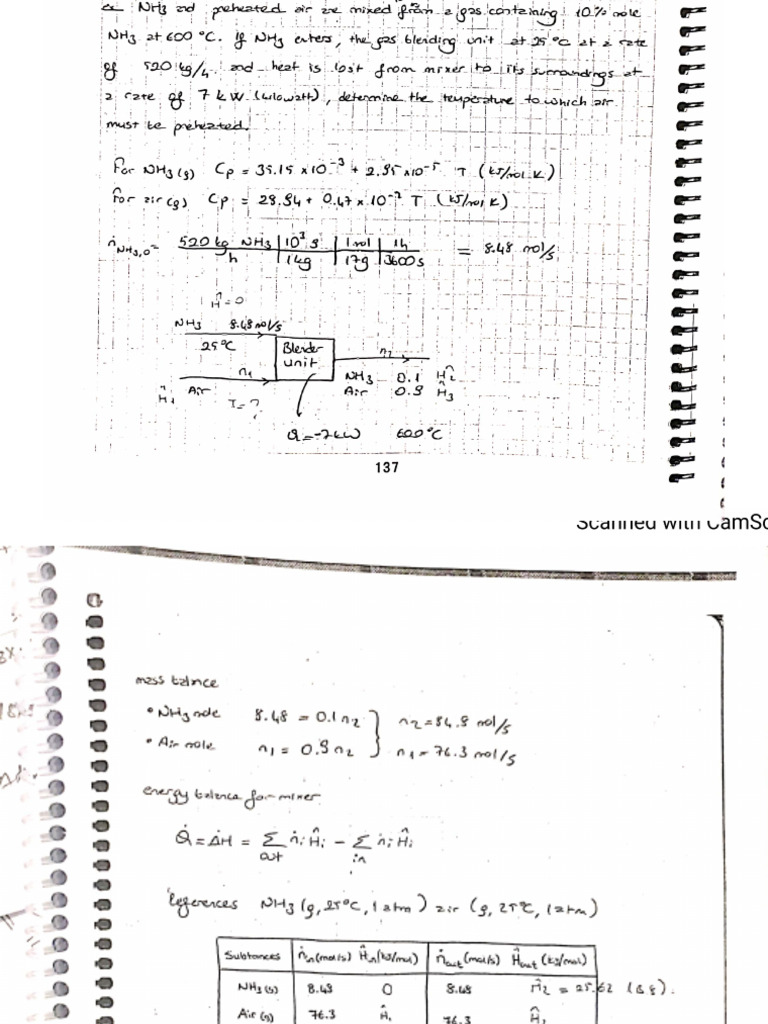 ex NH3 and preheated air are mixed from a gas containing 10% mole
NH3 at 600 °C. If NH3 enters, the gas blending unit at 25 °C at a rate
of 520 kg/h. and heat is lost from mixer to its surroundings at
a rate of 7 kW (kilowatt), determine the temperature to which air
must be preheated.
For NH3(g) Cp = 35.15 x10⁻³ + 2.95x10⁻⁵ T (kJ/mol K)
For air(g) Cp = 28.94 + 0.47 x 10⁻² T (kJ/mol K)
ṅNH3,0 = 520 kg NH3 | 10³ g | 1 mol | 1h = 8.48 mol/s
h | 1kg | 17g | 3600s
Ĥ=0
NH3 8.48 mol/s
25°C
Blender unit
n2
n1
NH3 0.1 Ĥ2
Ĥ1 Air T=?
Air 0.9 Ĥ3
Q=-7kW 600°C
137
Scanned with CamSc
mass balance
• NH3 mole 8.48 = 0.1 n2 } n2 = 84.8 mol/s
• Air mole n1 = 0.9 n2 } n1 = 76.3 mol/s
energy balance for mixer
Q̇ = ΔḢ = Σ ṅi Ĥi - Σ ṅi Ĥi
out in
References NH3 (g, 25°C, 1 atm) air (g, 25°C, 1 atm)
Subtances ṅin(mol/s) Ĥin(kJ/mol) ṅout(mol/s) Ĥout (kJ/mol)
NH3(g) 8.48 0 8.48 Ĥ2 = 25.62 (B8).
Air (g) 76.3 Ĥ1 76.3 Ĥ3